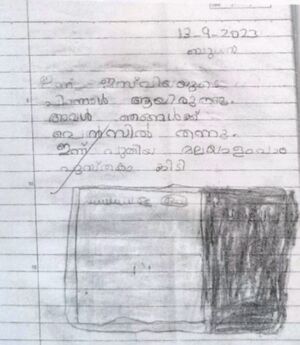 13-9-2023
ബുധൻ
ഇന്ന്
പിറന്നാൾ ആയിരുന്നു.
അവൾ ഞങ്ങൾക്ക്
പെൻസിൽ തന്നു.
ഇന്ന് പുതിയ മലയാളംപാഠ
പുസ്തകം കിട്ടി